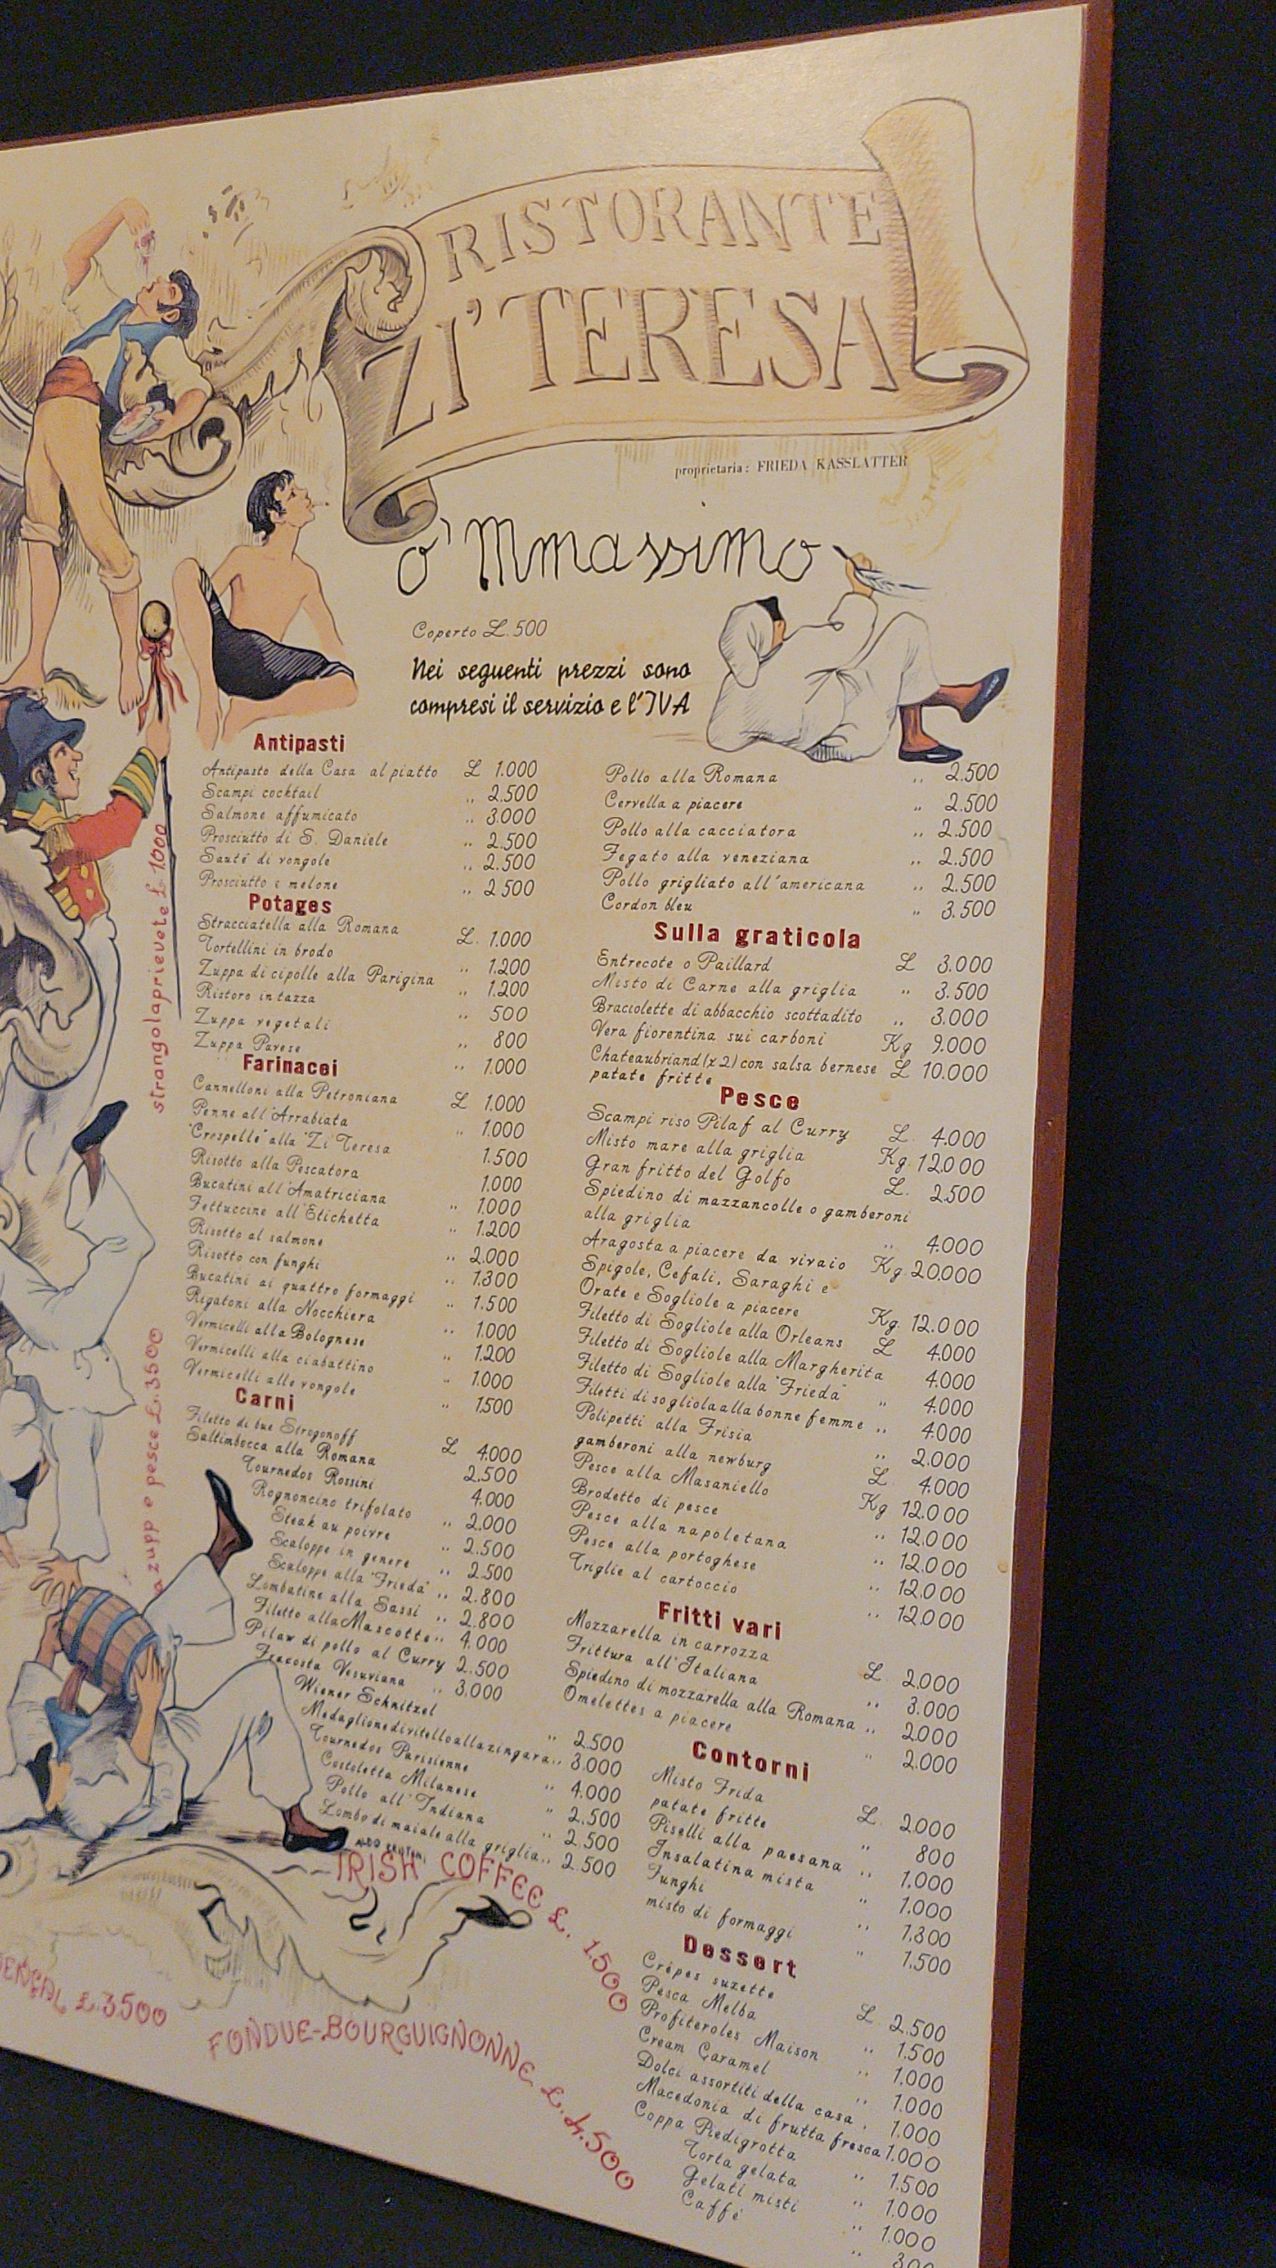 RISTORANTE
ZI' TERESA
proprietaria: FRIEDA KASSLATTER
o' Mmassimo
Coperto £. 500
Nei seguenti prezzi sono
compresi il servizio e l'IVA
Antipasti
Antipasto della Casa al piatto £ 1.000
Scampi cocktail ,, 2.500
Salmone affumicato ,, 3.000
Prosciutto di S. Daniele ,, 2.500
Sauté di vongole ,, 2.500
Prosciutto e melone ,, 2.500
Potages
Stracciatella alla Romana £. 1.000
Tortellini in brodo ,, 1.200
Zuppa di cipolle alla Parigina ,, 1.200
Ristoro in tazza ,, 500
Zuppa vegetali ,, 800
Zuppa Pavese ,, 1.000
Farinacei
Cannelloni alla Petroniana £ 1.000
Penne all'Arrabiata ,, 1.000
"Crespelle" alla "Zi Teresa 1.500
Risotto alla Pescatora 1.000
Bucatini all'Amatriciana ,, 1.000
Fettuccine all'Etichetta ,, 1.200
Risotto al salmone ,, 2.000
Risotto con funghi ,, 1.300
Bucatini ai quattro formaggi ,, 1.500
Rigatoni alla Nocchiera ,, 1.000
Vermicelli alla Bolognese ,, 1.200
Vermicelli alla ciabattino ,, 1.000
Vermicelli alle vongole ,, 1.500
Carni
Filetto di bue Strogonoff £ 4.000
Saltimbocca alla Romana 2.500
Tournedos Rossini 4.000
Rognoncino trifolato ,, 2.000
Steak au poivre ,, 2.500
Scaloppe in genere ,, 2.500
Scaloppe alla "Frieda" ,, 2.800
Lombatine alla Sassi ,, 2.800
Filetto alla Mascotte ,, 4.000
Pilaw di pollo al Curry 2.500
Fracosta Vesuviana ,, 3.000
Wiener Schnitzel ,, 2.500
Medaglione di vitello alla zingara ,, 3.000
Tournedos Parisienne ,, 4.000
Costoletta Milanese ,, 2.500
Pollo all'Indiana ,, 2.500
Lombo di maiale alla griglia ,, 2.500
Pollo alla Romana ,, 2.500
Cervella a piacere ,, 2.500
Pollo alla cacciatora ,, 2.500
Fegato alla veneziana ,, 2.500
Pollo grigliato all'americana ,, 2.500
Cordon bleu ,, 3.500
Sulla graticola
Entrecote o Paillard £ 3.000
Misto di Carne alla griglia ,, 3.500
Braciolette di abbacchio scottadito ,, 3.000
Vera fiorentina sui carboni Kg 9.000
Chateaubriand (x2) con salsa bernese £ 10.000
patate fritte
Pesce
Scampi riso Pilaf al Curry £. 4.000
Misto mare alla griglia Kg. 12.000
Gran fritto del Golfo £. 2.500
Spiedino di mazzancolle o gamberoni
alla griglia ,, 4.000
Aragosta a piacere da vivaio Kg. 20.000
Spigole, Cefali, Saraghi e
Orate e Sogliole a piacere Kg. 12.000
Filetto di Sogliole alla Orleans £ 4.000
Filetto di Sogliole alla Margherita 4.000
Filetto di Sogliole alla "Frieda" ,, 4.000
Filetti di sogliola alla bonne femme ,, 4.000
Polipetti alla Frisia ,, 2.000
gamberoni alla newburg £ 4.000
Pesce alla Masaniello Kg 12.000
Brodetto di pesce ,, 12.000
Pesce alla napoletana ,, 12.000
Pesce alla portoghese ,, 12.000
Triglie al cartoccio ,, 12.000
Fritti vari
Mozzarella in carrozza £ 2.000
Frittura all'Italiana ,, 3.000
Spiedino di mozzarella alla Romana ,, 2.000
Omelettes a piacere ,, 2.000
Contorni
Misto Frida £. 2.000
patate fritte ,, 800
Piselli alla paesana ,, 1.000
Insalatina mista ,, 1.000
Funghi ,, 1.300
misto di formaggi ,, 1.500
Dessert
Crêpes suzette £ 2.500
Pesca Melba ,, 1.500
Profiteroles Maison ,, 1.000
Cream Caramel ,, 1.000
Dolci assortiti della casa , 1.000
Macedonia di frutta fresca 1.000
Coppa Piedigrotta ,, 1.500
Torta gelata ,, 1.000
Gelati misti ,, 1.000
Caffé ,, 300
strangolaprievete £. 1.000
a zupp e pesce £. 3500
IRISH COFFEE £. 1.500
£.3.500
FONDUE-BOURGUIGNONNE £. 4.500